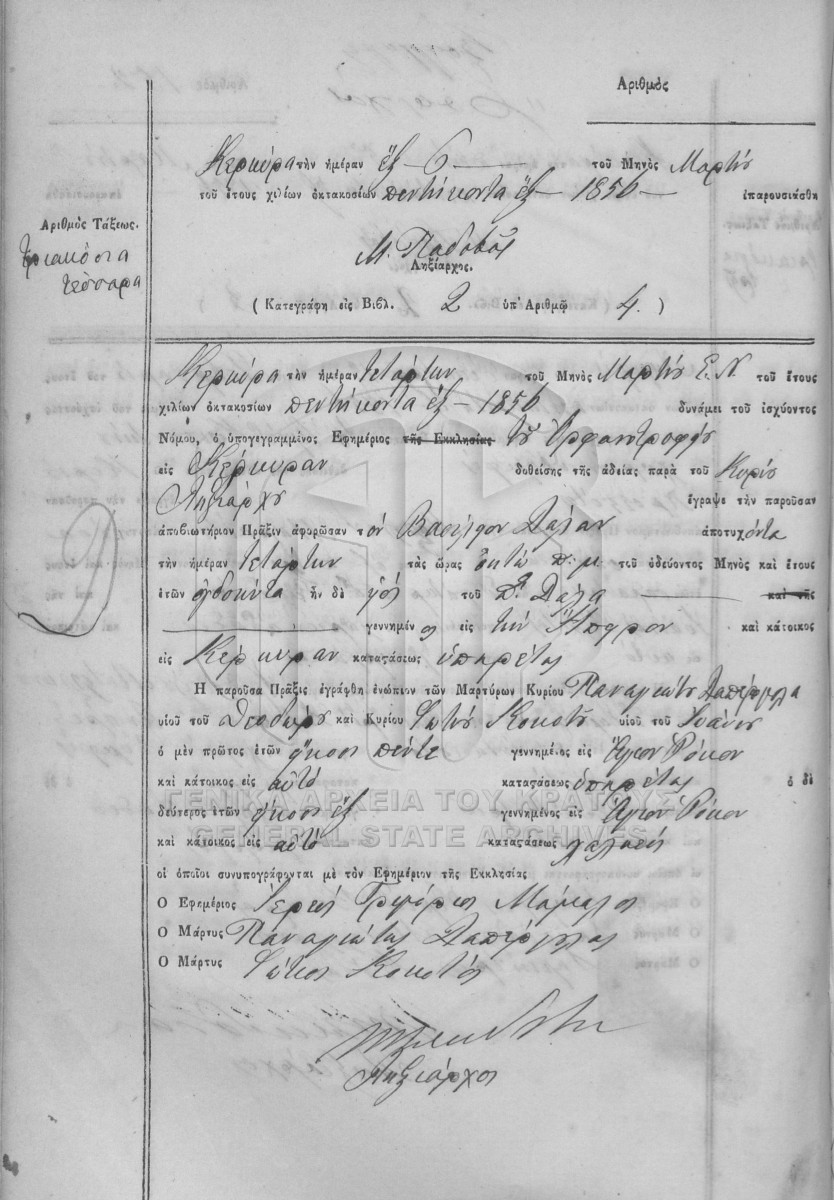 Ἀριθμὸς
Κερκύρα τὴν ἡμέραν ἕξ — 6 — τοῦ Μηνὸς Μαρτίου
τοῦ ἔτους χιλίων ὀκτακοσίων πεντήκοντα ἕξ — 1856 — ἐπαρουσιάσθη
Ἀριθμὸς Τάξεως.
τριακόσια
τέσσαρα
Μ. Παδοβᾶς
Ληξίαρχος.
( Κατεγράφη εἰς Βιβλ. 2 ὑπ' Ἀριθμῷ 4. )
Κερκύρα τὴν ἡμέραν τετάρτην τοῦ Μηνὸς Μαρτίου Ε.Ν. τοῦ ἔτους
χιλίων ὀκτακοσίων πεντήκοντα ἕξ — 1856 δυνάμει τοῦ ἰσχύοντος
Νόμου, ὁ ὑπογεγραμμένος Ἐφημέριος τῆς Ἐκκλησίας τοῦ Ὀρφανοτροφίου
εἰς Κέρκυραν δοθείσης τῆς ἀδείας παρὰ τοῦ Κυρίου
Ληξιάρχου ἔγραψε τὴν παροῦσαν
ἀποβιωτήριον Πρᾶξιν ἀφορῶσαν τὸν Βασίλειον ἀποτυχόντα
τὴν ἡμέραν τετάρτην τὰς ὥρας ὀκτὼ π.μ. τοῦ ὁδεύοντος Μηνὸς καὶ ἔτους
ἐτῶν ὀγδοήντα ἦν δὲ υἱὸς τοῦ — καὶ τῆς
γεννημένος εἰς τὴν Ἤπειρον καὶ κάτοικος
εἰς Κέρκυραν καταστάσεως ὑπηρέτης
Ἡ παροῦσα Πρᾶξις ἐγράφθη ἐνώπιον τῶν Μαρτύρων Κυρίου Παναγιώτου
υἱοῦ τοῦ Θεοδώρου καὶ Κυρίου Φώτιου Κοκοτοῦ υἱοῦ τοῦ Ἰωάννου
ὁ μὲν πρῶτος ἐτῶν ἤκοσι πέντε γεννημένος εἰς Ἅγιον Ρόκον
καὶ κάτοικος εἰς αὐτὸ καταστάσεως ὑπηρέτης ὁ δὲ
δεύτερος ἐτῶν ἤκοσι ἕξ γεννημένος εἰς Ἅγιον Ρόκον
καὶ κάτοικος εἰς αὐτὸ καταστάσεως
οἱ ὁποῖοι συνυπογράφονται μὲ τὸν Ἐφημέριον τῆς Ἐκκλησίας
Ὁ Ἐφημέριος Ἱερεὺς Γρηγόριος Μάμαλος
Ὁ Μάρτυς Παναγιώτης
Ὁ Μάρτυς Φώτιος Κοκοτός
Ληξίαρχος
ΓΕΝΙΚΑ ΑΡΧΕΙΑ ΤΟΥ ΚΡΑΤΟΥΣ
GENERAL STATE ARCHIVES